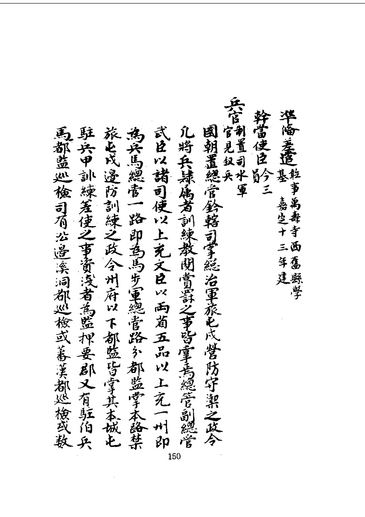 準備差遣在事萬壽寺西舊縣學
基嘉定十三年建
幹當使臣今三員
兵官制置司水軍
官見叙兵
國朝置總管鈐轄司掌總治軍旅屯戍營防守禦之政令
凡將兵隸屬者訓練教閱賞罰之事皆掌焉總管副總管
武臣以諸司使以上充文臣以兩省五品以上充一州即
為兵馬總管一路即為馬步軍總管路分都監掌本路禁
旅屯戍邊防訓練之政令州府以下都監皆掌其本城屯
駐兵甲訓練差使之事資淺者為監押要郡又有駐泊兵
馬都監巡檢司有沿邊溪洞都巡檢或蕃漢都巡檢或數
150